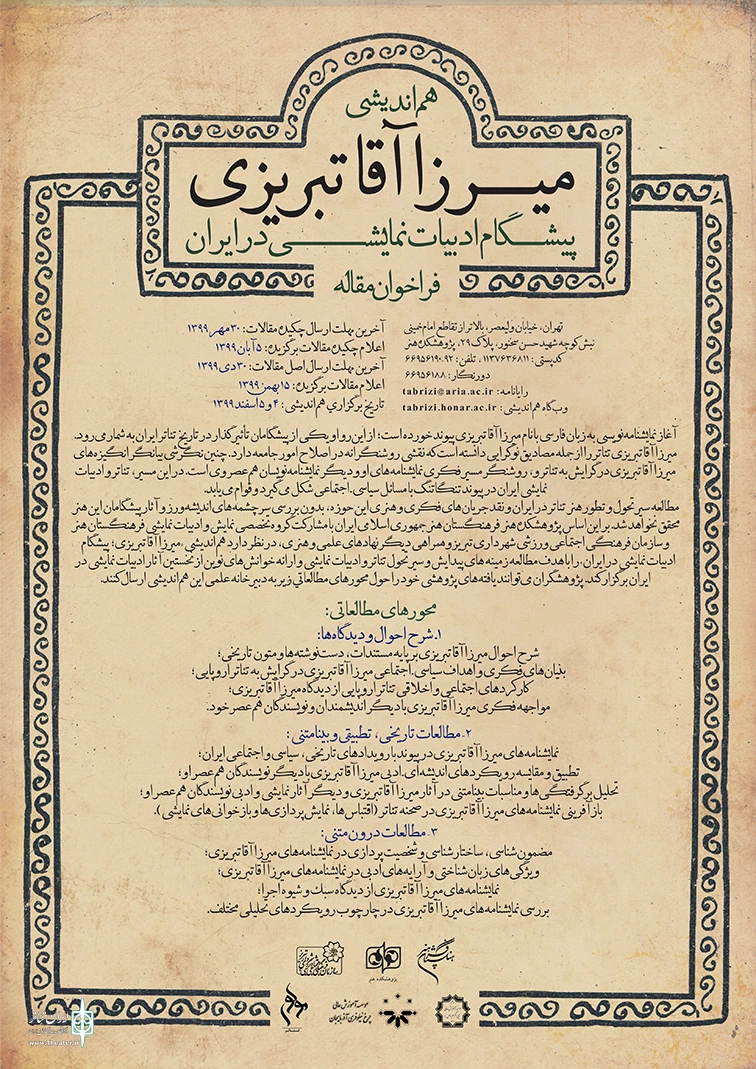 هم‌اندیشی
میرزا آقا تبریزی
پیشگام ادبیات نمایشی در ایران
فراخوان مقاله
تهران، خیابان ولیعصر، بالاتر از تقاطع امام خمینی
نبش کوچه شهید حسن سخنور، پلاک ۲۹، پژوهشکده هنر
کدپستی: ۱۱۳۷۶۳۶۸۱۱، تلفن: ۹۲-۶۶۹۵۶۱۹۰
دورنگار: ۶۶۹۵۶۱۸۸
رایانامه: tabrizi@aria.ac.ir
وب‌گاه هم‌اندیشی: tabrizi.honar.ac.ir
آخرین مهلت ارسال چکیده مقالات: ۳۰ مهر ۱۳۹۹
اعلام چکیده مقالات برگزیده: ۵ آبان ۱۳۹۹
آخرین مهلت ارسال اصل مقالات: ۳۰ دی ۱۳۹۹
اعلام مقالات برگزیده: ۱۵ بهمن ۱۳۹۹
تاریخ برگزاری هم‌اندیشی: ۴ و ۵ اسفند ۱۳۹۹
آغاز نمایشنامه‌نویسی به زبان فارسی با نام میرزا آقا تبریزی پیوند خورده است؛ از این رو او یکی از پیشگامان تأثیرگذار در تاریخ تئاتر ایران به شمار می‌رود.
میرزا آقا تبریزی تئاتر را از جمله مصادیق نوگرایی دانسته است که نقشی روشنگرانه در اصلاح امور جامعه دارد. چنین نگرشی بیانگر انگیزه‌های
میرزا آقا تبریزی در گرایش به تئاتر و، روشنگر مسیر فکری نمایشنامه‌های او و دیگر نمایشنامه‌نویسان هم‌عصر وی است. در این مسیر، تئاتر و ادبیات
نمایشی ایران در پیوند تنگاتنگ با مسائل سیاسی. اجتماعی شکل می‌گیرد و قوام می‌یابد.
مطالعه سیر تحول و تطور هنر تئاتر در ایران و نقد جریان‌های فکری و هنری این حوزه، بدون بررسی سرچشمه‌های اندیشه‌ورز و آثار پیشگامان این هنر
محقق نخواهد شد. بر این اساس پژوهشکده هنر فرهنگستان هنر جمهوری اسلامی ایران با مشارکت گروه تخصصی نمایش و ادبیات نمایشی فرهنگستان هنر
و سازمان فرهنگی اجتماعی ورزشی شهرداری تبریز و همراهی دیگر نهادهای علمی و هنری، در نظر دارد هم‌اندیشی «میرزا آقا تبریزی؛ پیشگام
ادبیات نمایشی در ایران» را با هدف مطالعه زمینه‌های پیدایش و سیر تحول تئاتر و ادبیات نمایشی و ارائه خوانش‌های نوین از نخستین آثار ادبیات نمایشی در
ایران برگزار کند. پژوهشگران می‌توانند یافته‌های پژوهشی خود را حول محورهای مطالعاتی زیر به دبیرخانه علمی این هم‌اندیشی ارسال کنند.
محورهای مطالعاتی:
۱. شرح احوال و دیدگاه‌ها:
شرح احوال میرزا آقا تبریزی بر پایه مستندات، دست‌نوشته‌ها و متون تاریخی؛
بنیان‌های فکری و اهداف سیاسی. اجتماعی میرزا آقا تبریزی در گرایش به تئاتر اروپایی؛
کارکردهای اجتماعی و اخلاقی تئاتر اروپایی از دیدگاه میرزا آقا تبریزی؛
مواجهه فکری میرزا آقا تبریزی با دیگر اندیشمندان و نویسندگان هم‌عصر خود.
۲. مطالعات تاریخی، تطبیقی و بینامتنی:
نمایشنامه‌های میرزا آقا تبریزی در پیوند با رویدادهای تاریخی، سیاسی و اجتماعی ایران؛
تطبیق و مقایسه رویکردهای اندیشه‌ای. ادبی میرزا آقا تبریزی با دیگر نویسندگان هم‌عصر او؛
تحلیل برگرفتگی‌ها و مناسبات بینامتنی در آثار میرزا آقا تبریزی و دیگر آثار نمایشی و ادبی نویسندگان هم‌عصر او؛
بازآفرینی نمایشنامه‌های میرزا آقا تبریزی در صحنه تئاتر (اقتباس‌ها، نمایش‌پردازی‌ها و بازخوانی‌های نمایشی).
۳. مطالعات درون‌متنی:
مضمون‌شناسی، ساختارشناسی و شخصیت‌پردازی در نمایشنامه‌های میرزا آقا تبریزی؛
ویژگی‌های زبان‌شناختی و آرایه‌های ادبی در نمایشنامه‌های میرزا آقا تبریزی؛
نمایشنامه‌های میرزا آقا تبریزی از دیدگاه سبک و شیوه اجرا؛
بررسی نمایشنامه‌های میرزا آقا تبریزی در چارچوب رویکردهای تحلیلی مختلف.
فرهنگستان هنر
پژوهشکده هنر
موسسه آموزش عالی
چرخ نیلوفری آذربایجان
ایران تئاتر
www.theater.ir